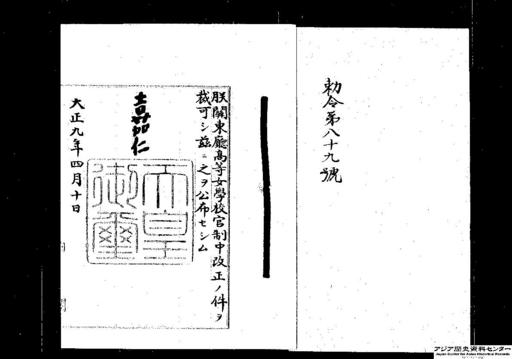 勅令第八十九號
朕關東廳高等女學校官制中改正ノ件ヲ
裁可シ茲ニ之ヲ公布セシム
嘉仁
天皇
御璽
大正九年四月十日
アジア歴史資料センター
Japan Center for Asian Historical Records